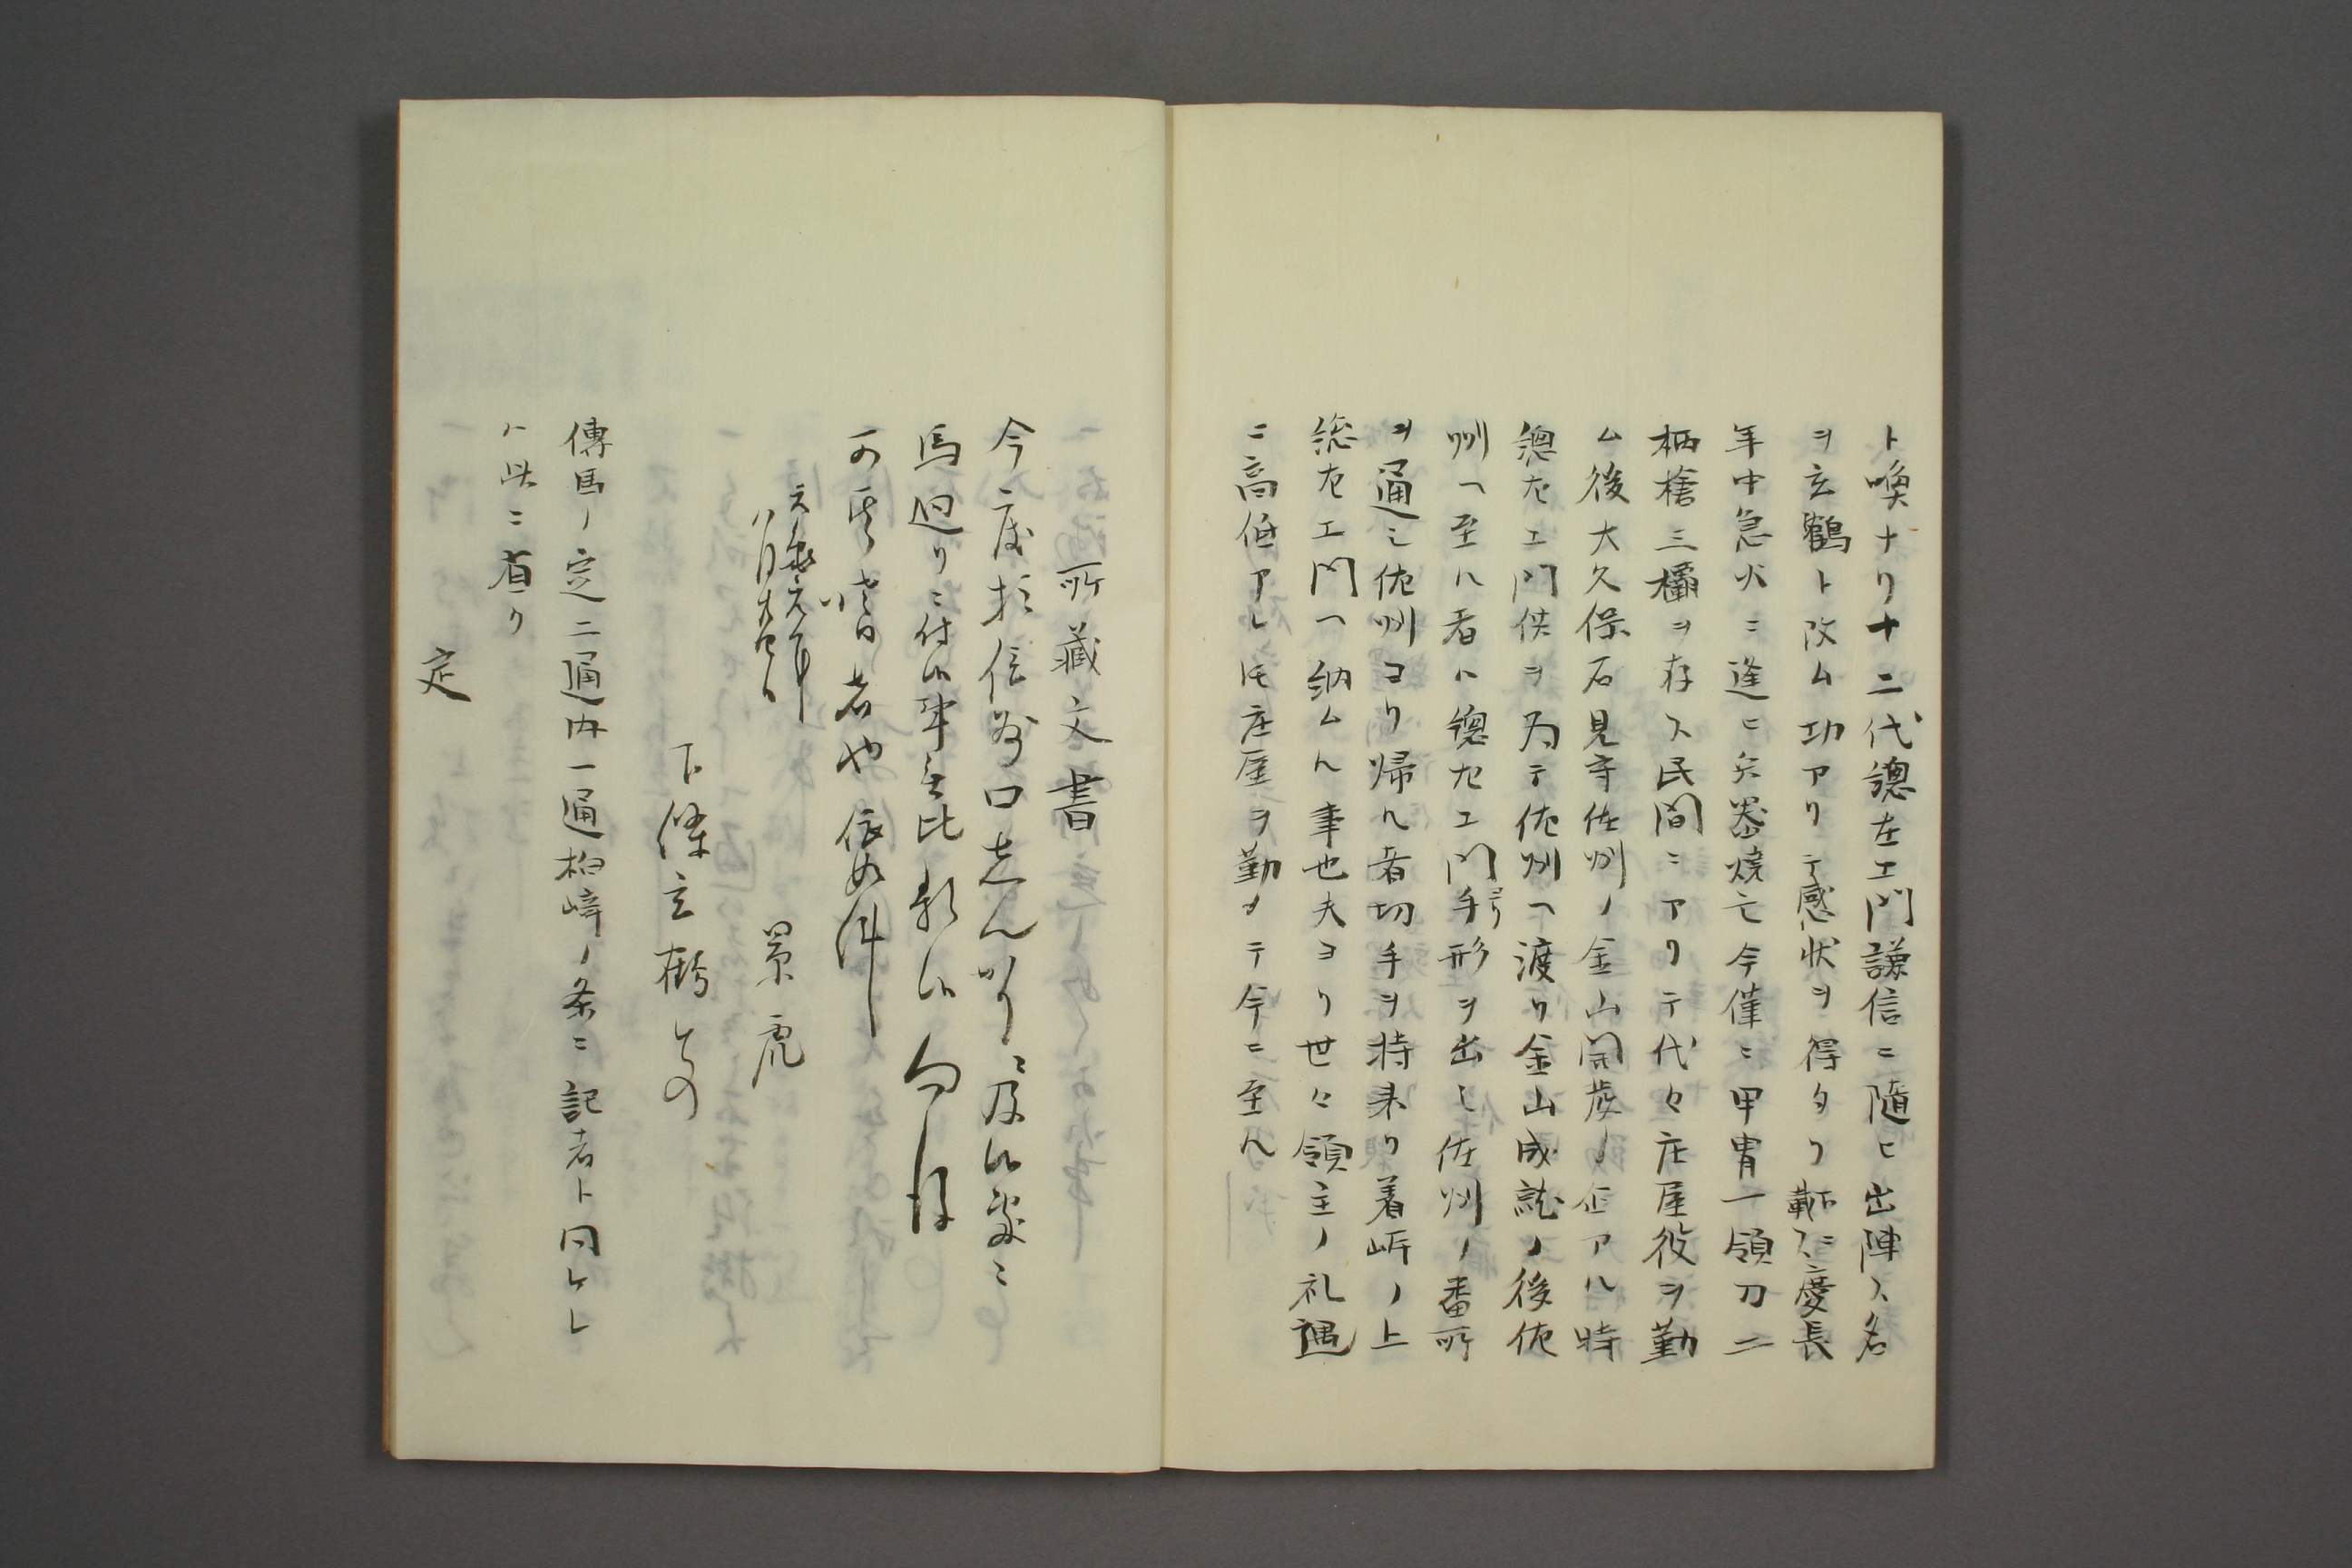 ト喚ナリ十二代總左エ門謙信ニ隨ヒ出陣ス名
ヲ玄鶴ト改ム功アリテ感状ヲ得タリ慶長
年中急火ニ逢ヒ兵器燒亡今僅ニ甲冑一領刀二
柄槍三欛ヲ存ス民間ニアリテ代々庄屋役ヲ勤
ム後大久保石見守佐州ノ金山開發ノ企アル時
總左エ門侠ヲ為テ佐州ヘ渡リ金山成就ノ後佐
州ヘ至ル者ハ總左エ門ヨリ手形ヲ出シ佐州ノ番所
ヲ通シ佐州ヨリ帰ル者切手ヲ持来リ着岍ノ上
總左エ門ヘ納ムル事也夫ヨリ世々領主ノ礼遇
ニ高低アレ𪜈庄屋ヲ勤メテ今ニ至ル
所藏文書
今度於信州口
馬廻リニ付候
者也仍如件
景虎
下條玄鶴との
傳馬ノ定二通内一通柏﨑ノ条ニ記者ト同ケレ
ハ此ニ省ク
定